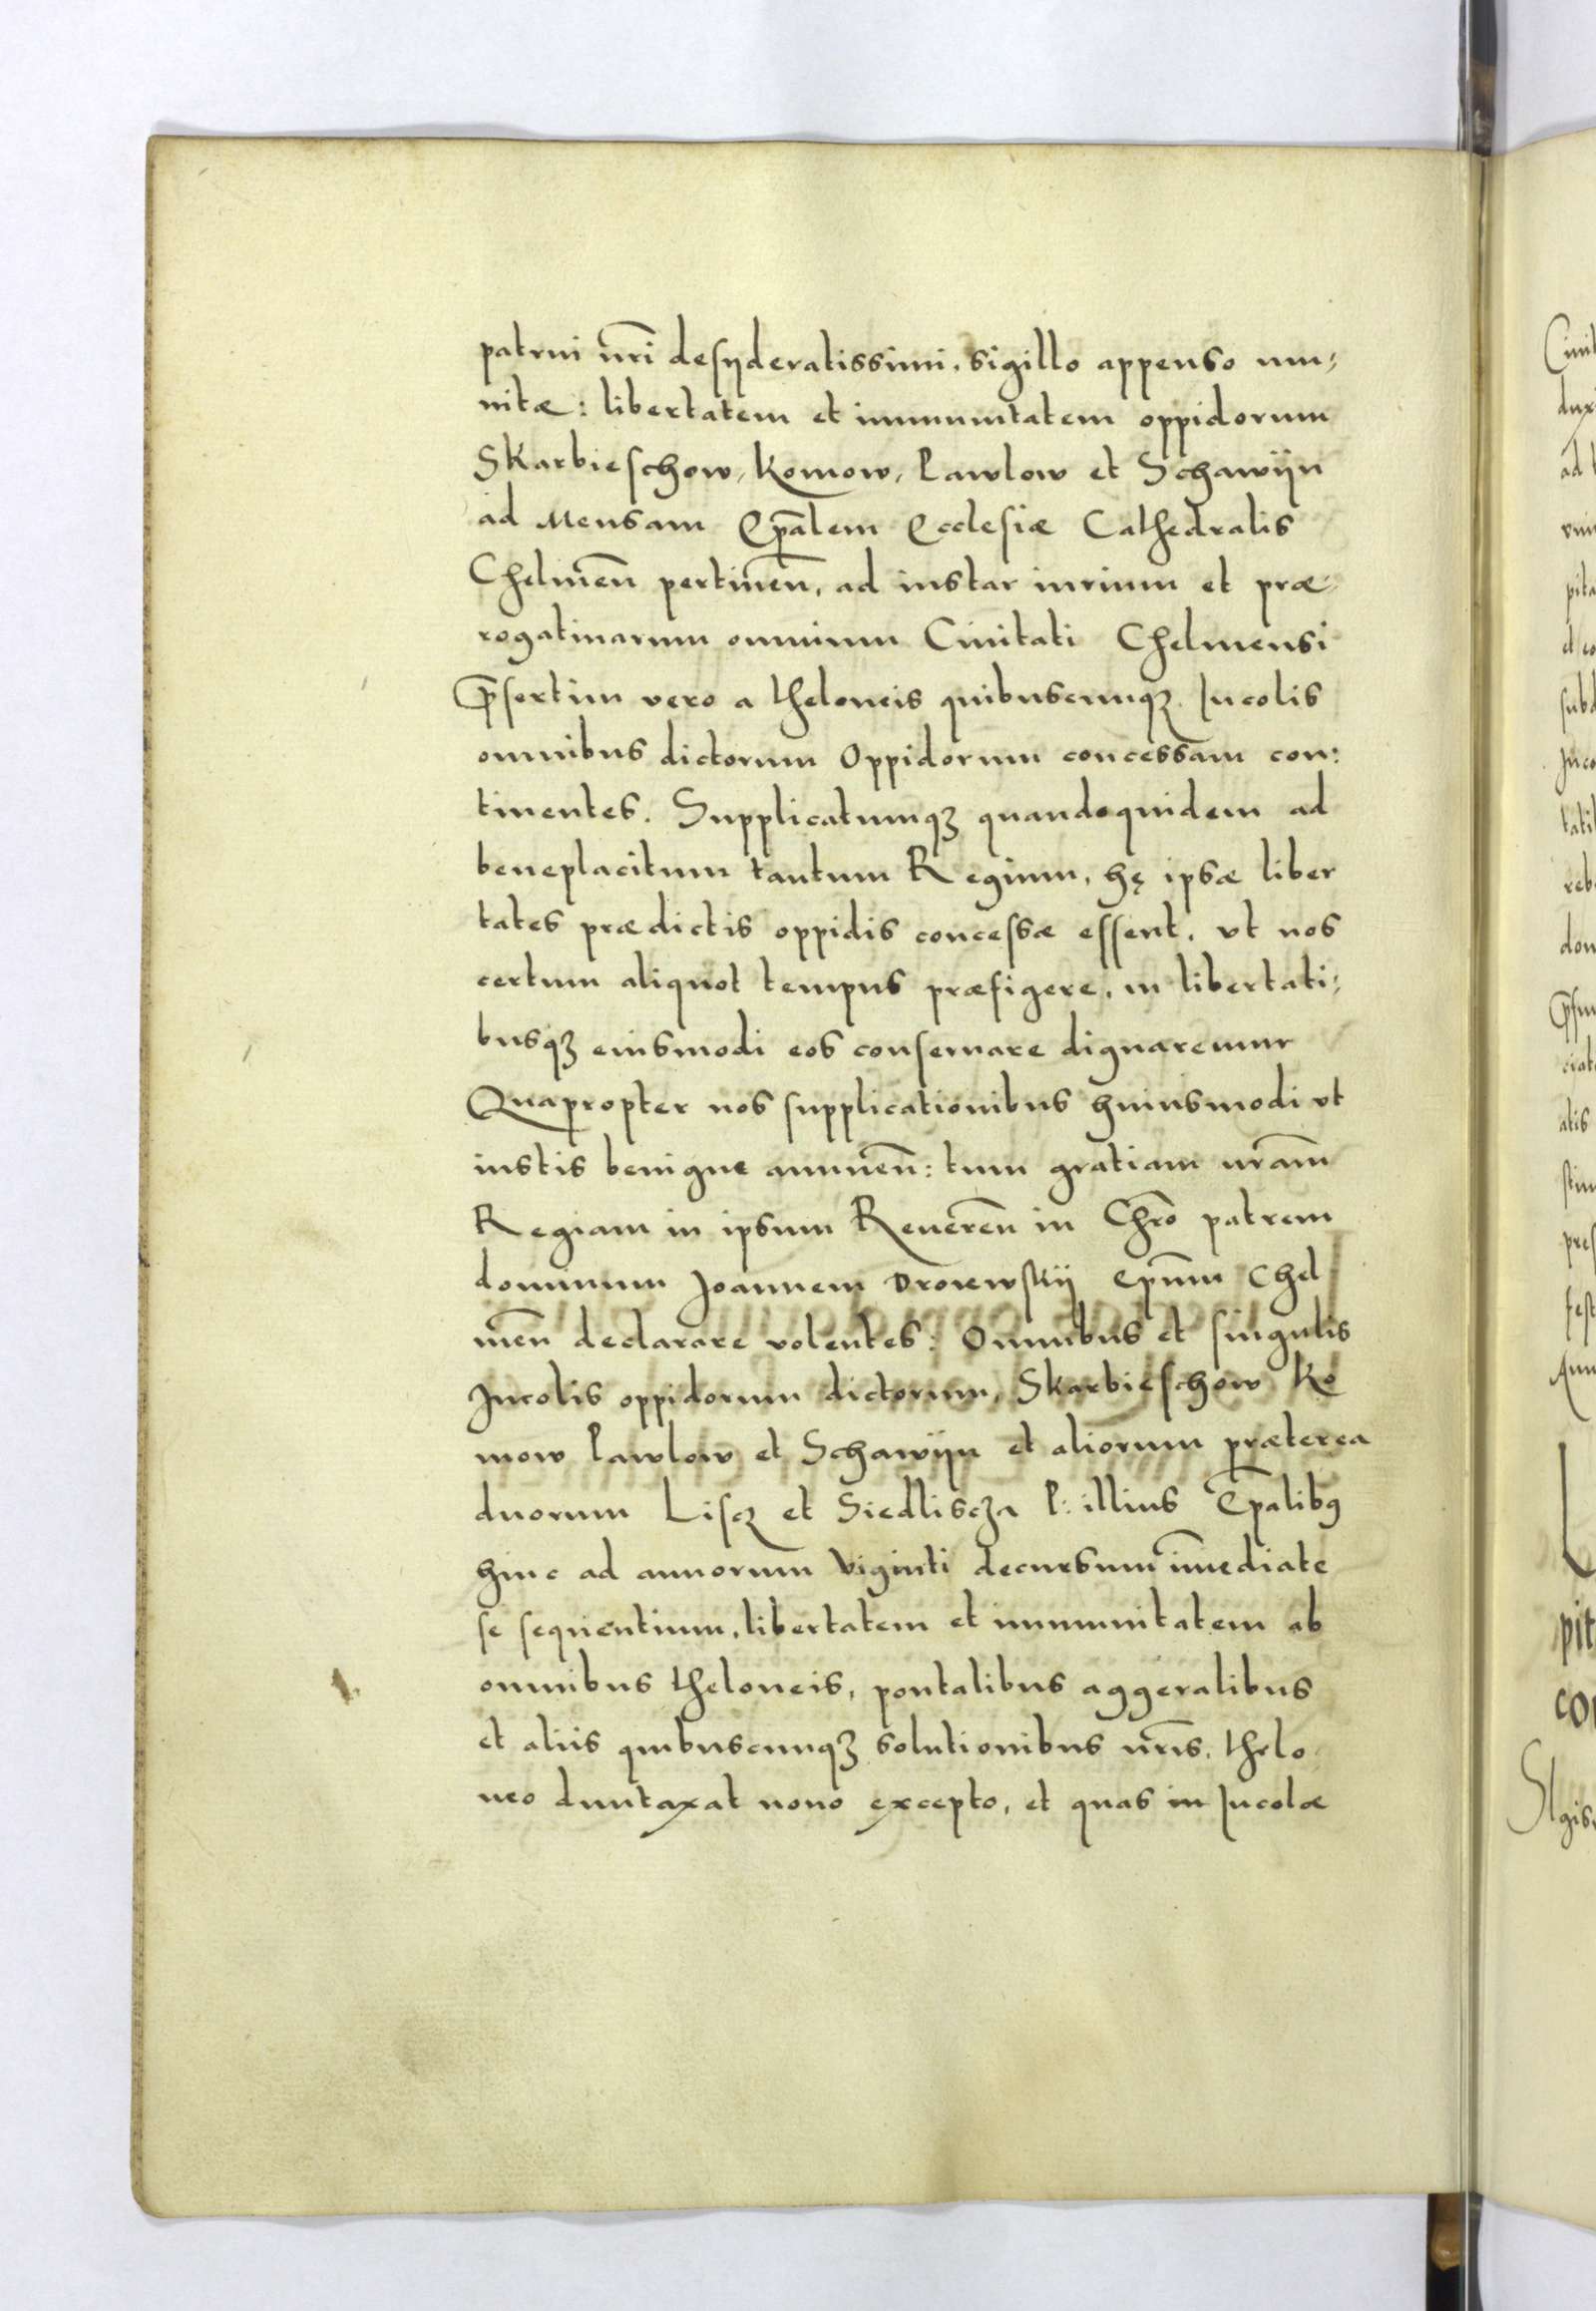 patrui nr̄i desyderatissimi, sigillo appenso mu⸗
nitæ: libertatem et immunitatem oppidorum
Skarbieschow, Komow, Pawlow et Schawyn
ad Mensam Ep̄alem Ecclesiæ Cathedralis
Chelmen̄ pertinen̄, ad instar iurium et præ⸗
rogatiuarum omnium Ciuitati Chelmensi
p̄sertim vero a theloneis quibuscunqꝫ Incolis
omnibus dictorum Oppidorum concessam con:
tinentes. Supplicatumqꝫ quandoquidem ad
beneplacitum tantum Regium, hę ipsæ liber
tates prædictis oppidis concessæ essent, vt nos
certum aliquot tempus præfigere, in libertati⸗
busqꝫ eiusmodi eos conseruare dignaremur
Quapropter nos supplicationibus huiusmodi vt
iustis benigne annuen̄: tum gratiam nr̄am
Regiam in ipsum Reueren̄ in Chr̄o patrem
dominum Joannem Drohewskij Ep̄um Chel
men̄ declarare volentes: Omnibus et singulis
Incolis oppidorum dictorum, Skarbieschow Ko
mow Pawlow et Schawyn et aliorum præterea
duorum Liscꝫ et Siedliscza P: illius Ep̄alibꝰ
hinc ad annorum Viginti decursum im̄ediate
se sequentium, libertatem et immunitatem ab
omnibus theloneis, pontalibus aggeralibus
et aliis quibuscunqꝫ solutionibus nr̄is, thelo
neo duntaxat nouo excepto, et quas in Incolæ